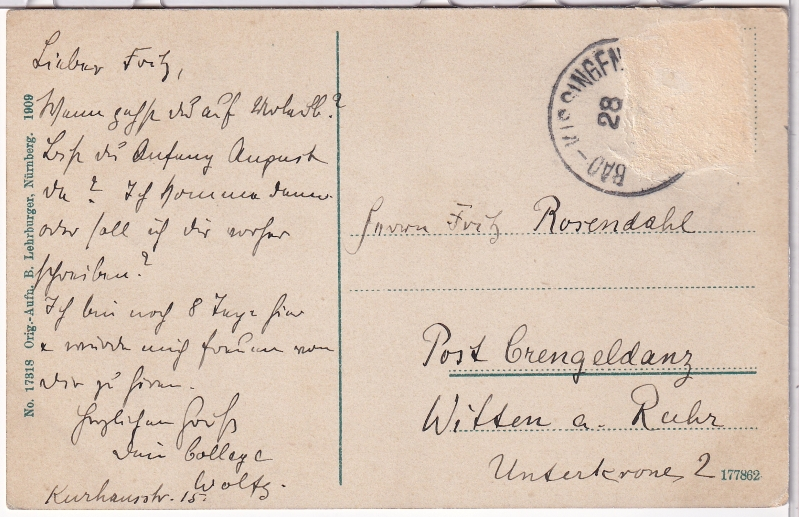 Lieber Fritz,
Wann gehst du auf Urlaub?
Bist du Anfang August
da? Ich komme dann
oder soll ich dir vorher
schreiben?
Ich bin noch 8 Tage hier
& würde mich freuen von
dir zu hören.
Herzlichen Gruß
Dein College
Woltz.
Kurhausstr. 15.
No. 17318 Orig.-Aufn. B. Lehrburger, Nürnberg. 1909
BAD-KISSINGEN
28
Herrn Fritz Rosendahl
Post Crengeldanz
Witten a. Ruhr
Unterkrone 2
177862